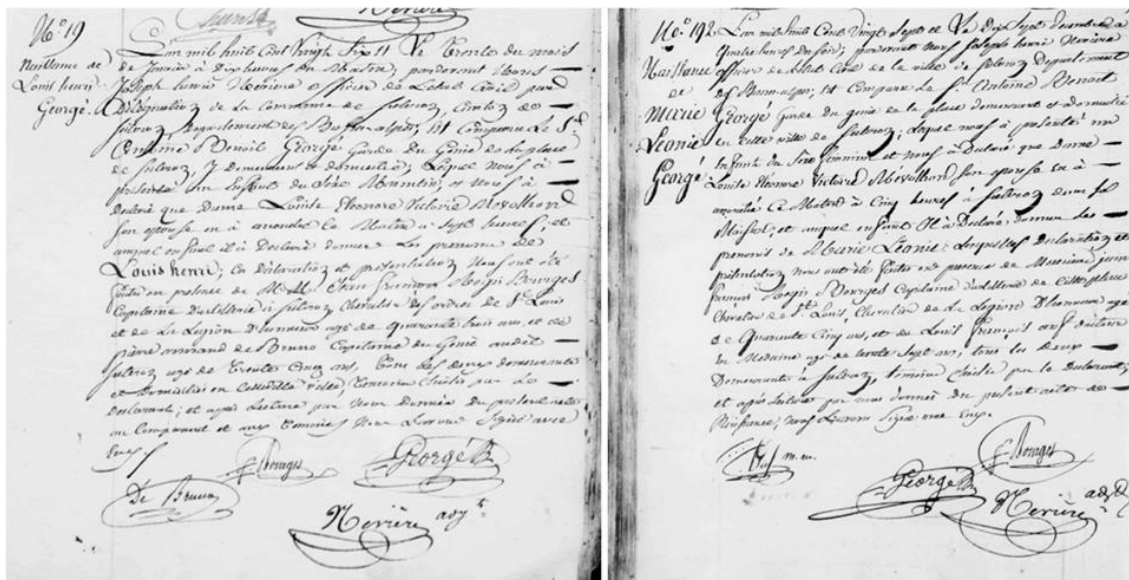 N.º 19
Naissance de
Louis henri
Georgé.
L'an mil huit Cent Vingt Six et Le Trente du mois
de Janvier à Dix heures du Matin, pardevant Nous
Joseph henri officier de Letat Civil par
Délégation de la Commune de Canton de
Departement des est Comparu Le S.r
Antoine Benoit Georgé Garde du Génie de la place
de y demeurant et domicilié; Lequel Nous à
présenté un Enfant du Sexe Masculin, et Nous à
declaré que Dame Louise Eléonore Victoire
Son épouse en à accouché le Matin à Sept heures, et
auquel enfant il à Declaré donner Les prenoms de
Louis henri; La Déclaration et présentation Nous ont été
faites en présence de M.M. Jean françois Régis Bourges
Capitaine D'artillerie à Chevalier des ordres de S.t Louis
et de La Legion D'honneur agé de Quarante trois ans, et de
pierre armand de Bruno Capitaine du Génie audit
agé de Trente Cinq ans, tous Les deux demeurants
et domiciliés en Cette ville Témoins Choisis par Le
declarant; et après Lecture par Nous Donnée du présent acte
au Comparant et aux Temoins Nous Lavons Signé avec
Eux
Bourges
Georgé B.
De Bruno
adj.t
N.º 192
Naissance
de
Marie
Léonie
Georgé
L'an mil huit Cent Vingt Sept et Le Dix Sept à
Quatre heures du Soir; pardevant nous Joseph henri
officier de Letat Civil de la ville de Departement
des est Comparu Le S.r Antoine Benoit
Georgé Garde du génie de la place demeurant et domicilié
en Cette ville de Lequel nous à présenté un
Enfant du Sexe féminin et Nous à Declaré que Dame
Louise Eléonore Victoire Son épouse en à
accouché Ce Matin à Cinq heures à dans Sa
Maison, et auquel enfant Il à Declaré donner Les
prenoms de Marie Léonie; Lesquelles Declaration et
présentation Nous ont été faites en présence de Messieurs jean
françois Regis Bourges Capitaine d'artillerie de Cette place
Chevalier de S.t Louis, Chevalier de La Légion D'honneur agé
de Quarante Cinq ans, et de Louis françois docteur
en Medecine agé de trente Sept ans, tous les deux
Demeurants à témoins Choisis par le declarant,
et après Lecture par nous donnée du présent acte de
Naissance, Nous Lavons Signé avec Eux.
Bourges
Georgé B.